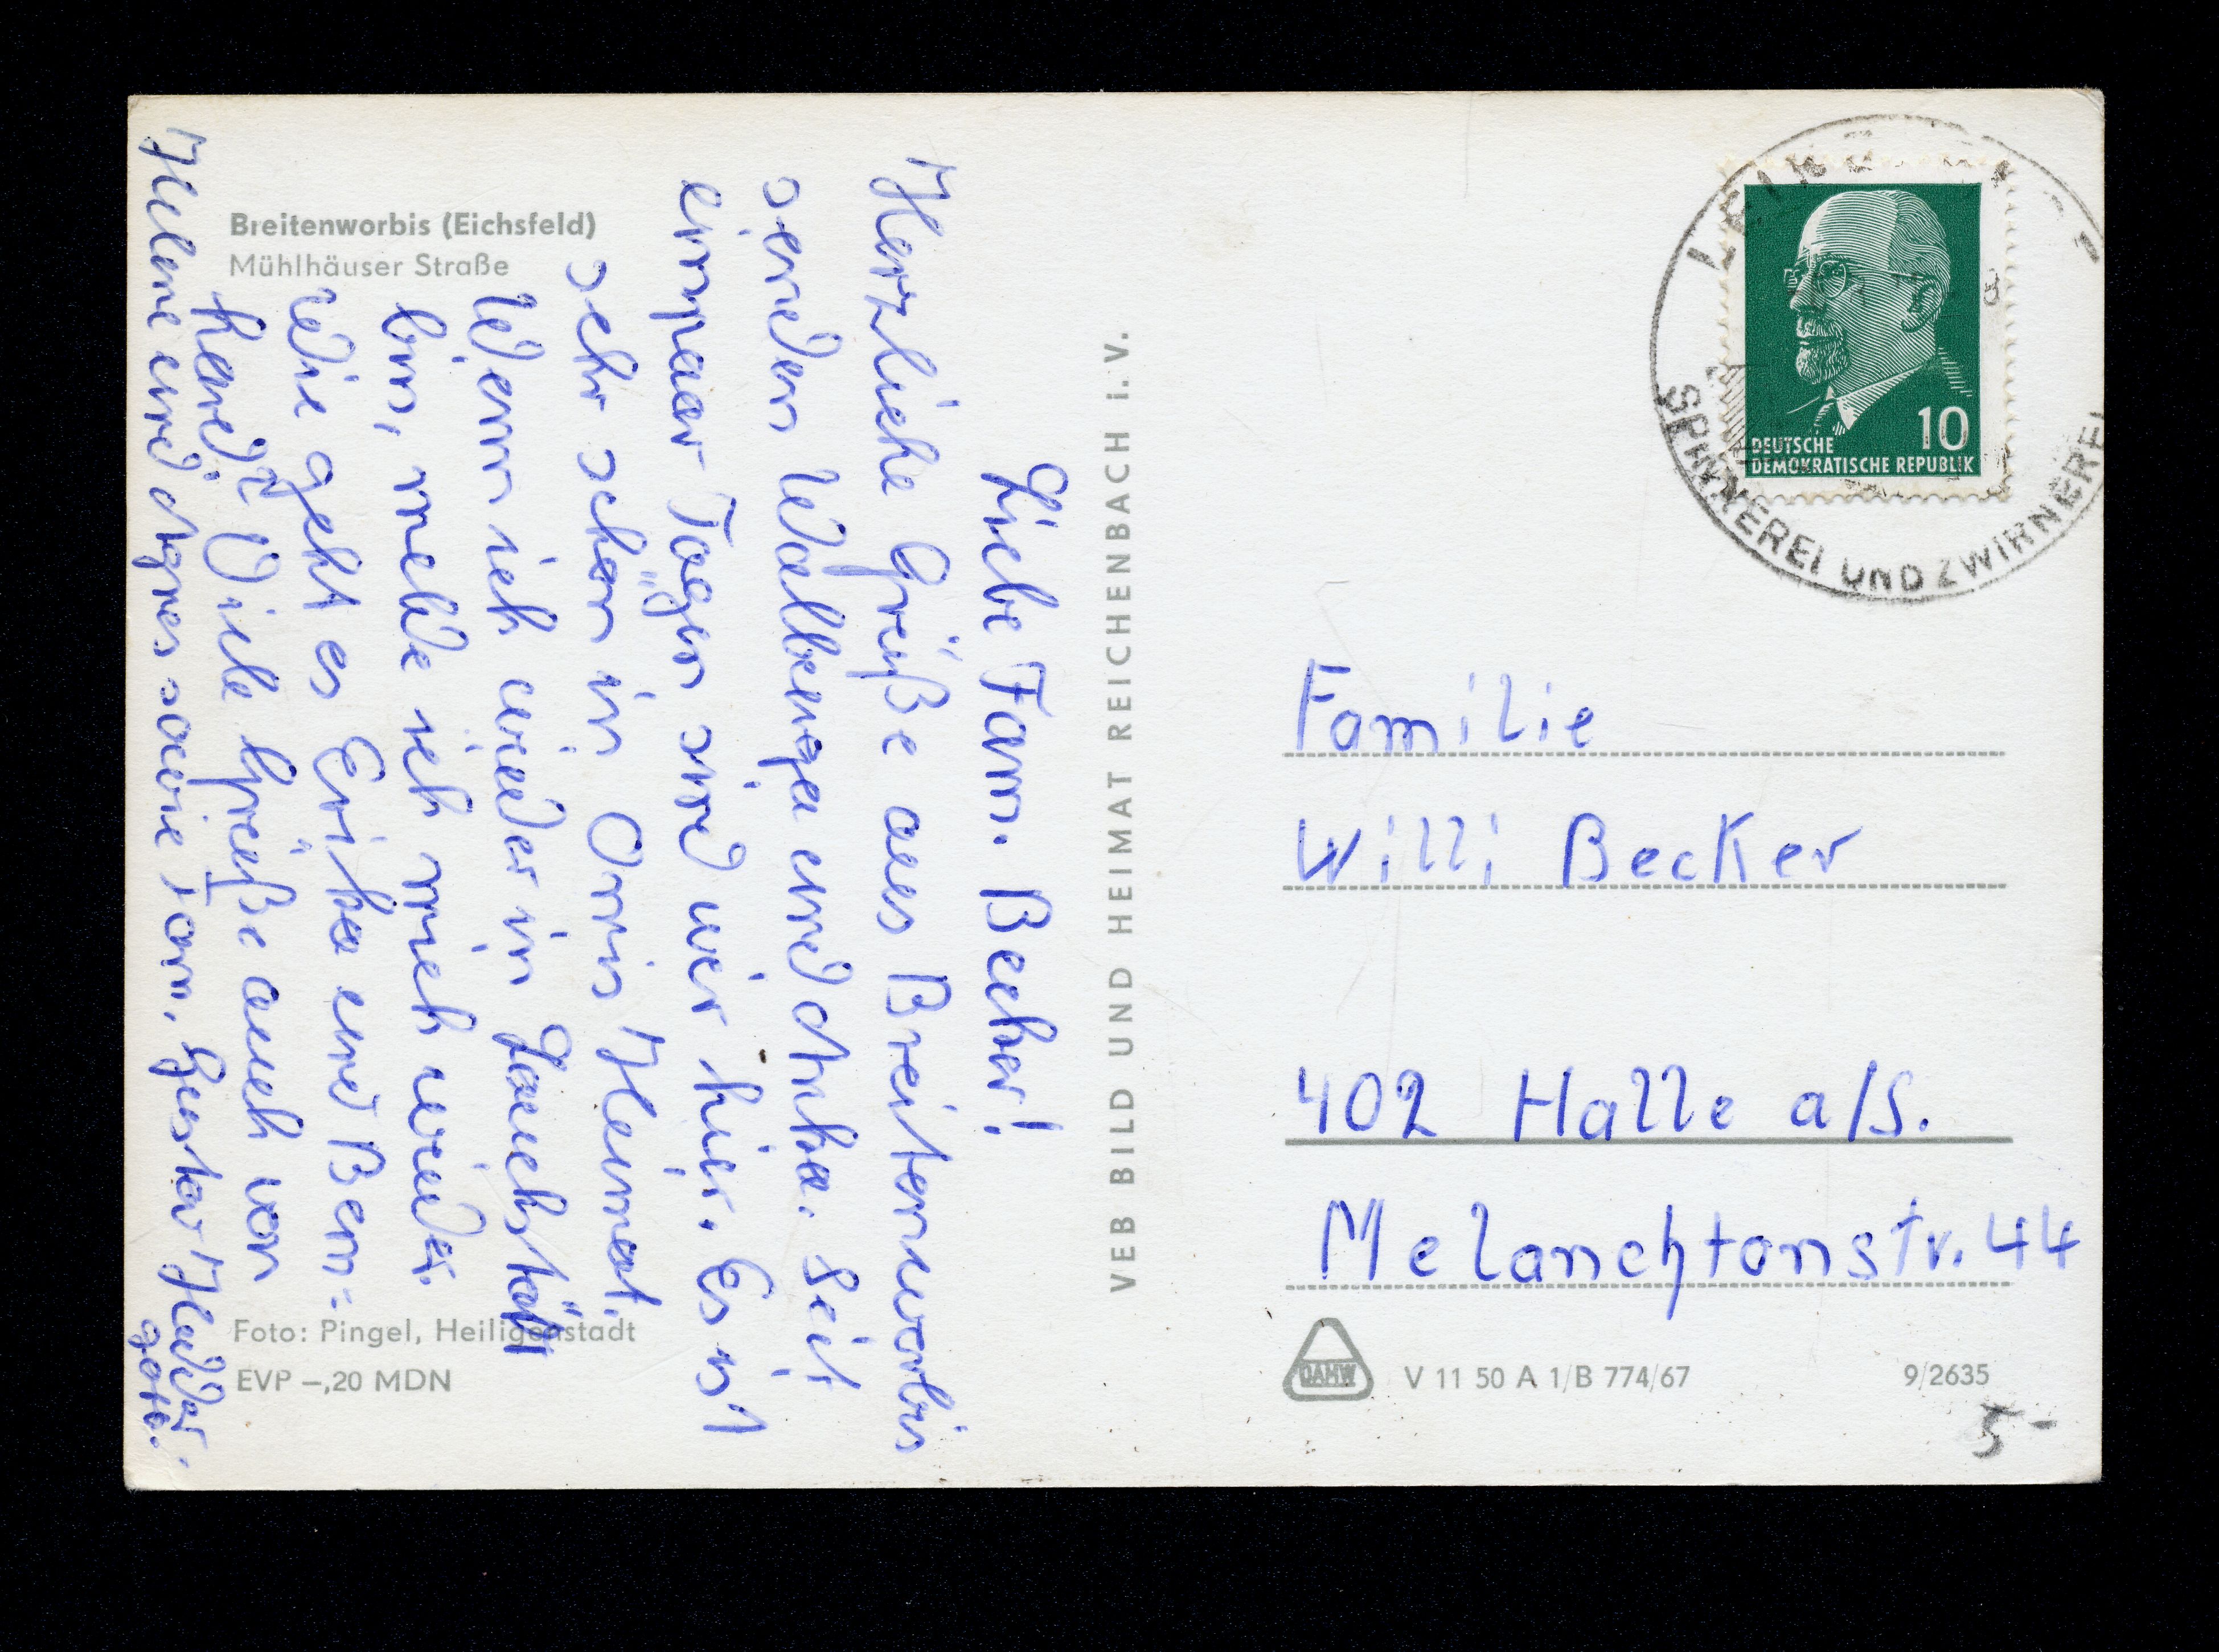 Breitenworbis (Eichsfeld)
Mühlhäuser Straße
Liebe Fam. Becker!
Herzliche Grüße aus Breitenworbis
senden Walburga und Anke. Seit
einpaar Tagen sind wir hier. Es ist
sehr schön in Omis Heimat.
Wenn ich wieder in Lauchstädt
bin, melde ich mich wieder.
Wie geht es Erika und Bern-
hard? Viele Grüße auch von
Helene und Agnes sowie Fam. Gustav
Foto: Pingel, Heiligenstadt
EVP –,20 MDN
VEB BILD UND HEIMAT REICHENBACH i. V.
DEUTSCHE
DEMOKRATISCHE REPUBLIK
10
SPINNEREI UND ZWIRNEREI
Familie
Willi Becker
402 Halle a/S.
Melanchtonstr. 44
DAMW
V 11 50 A 1/B 774/67
9/2635
5-